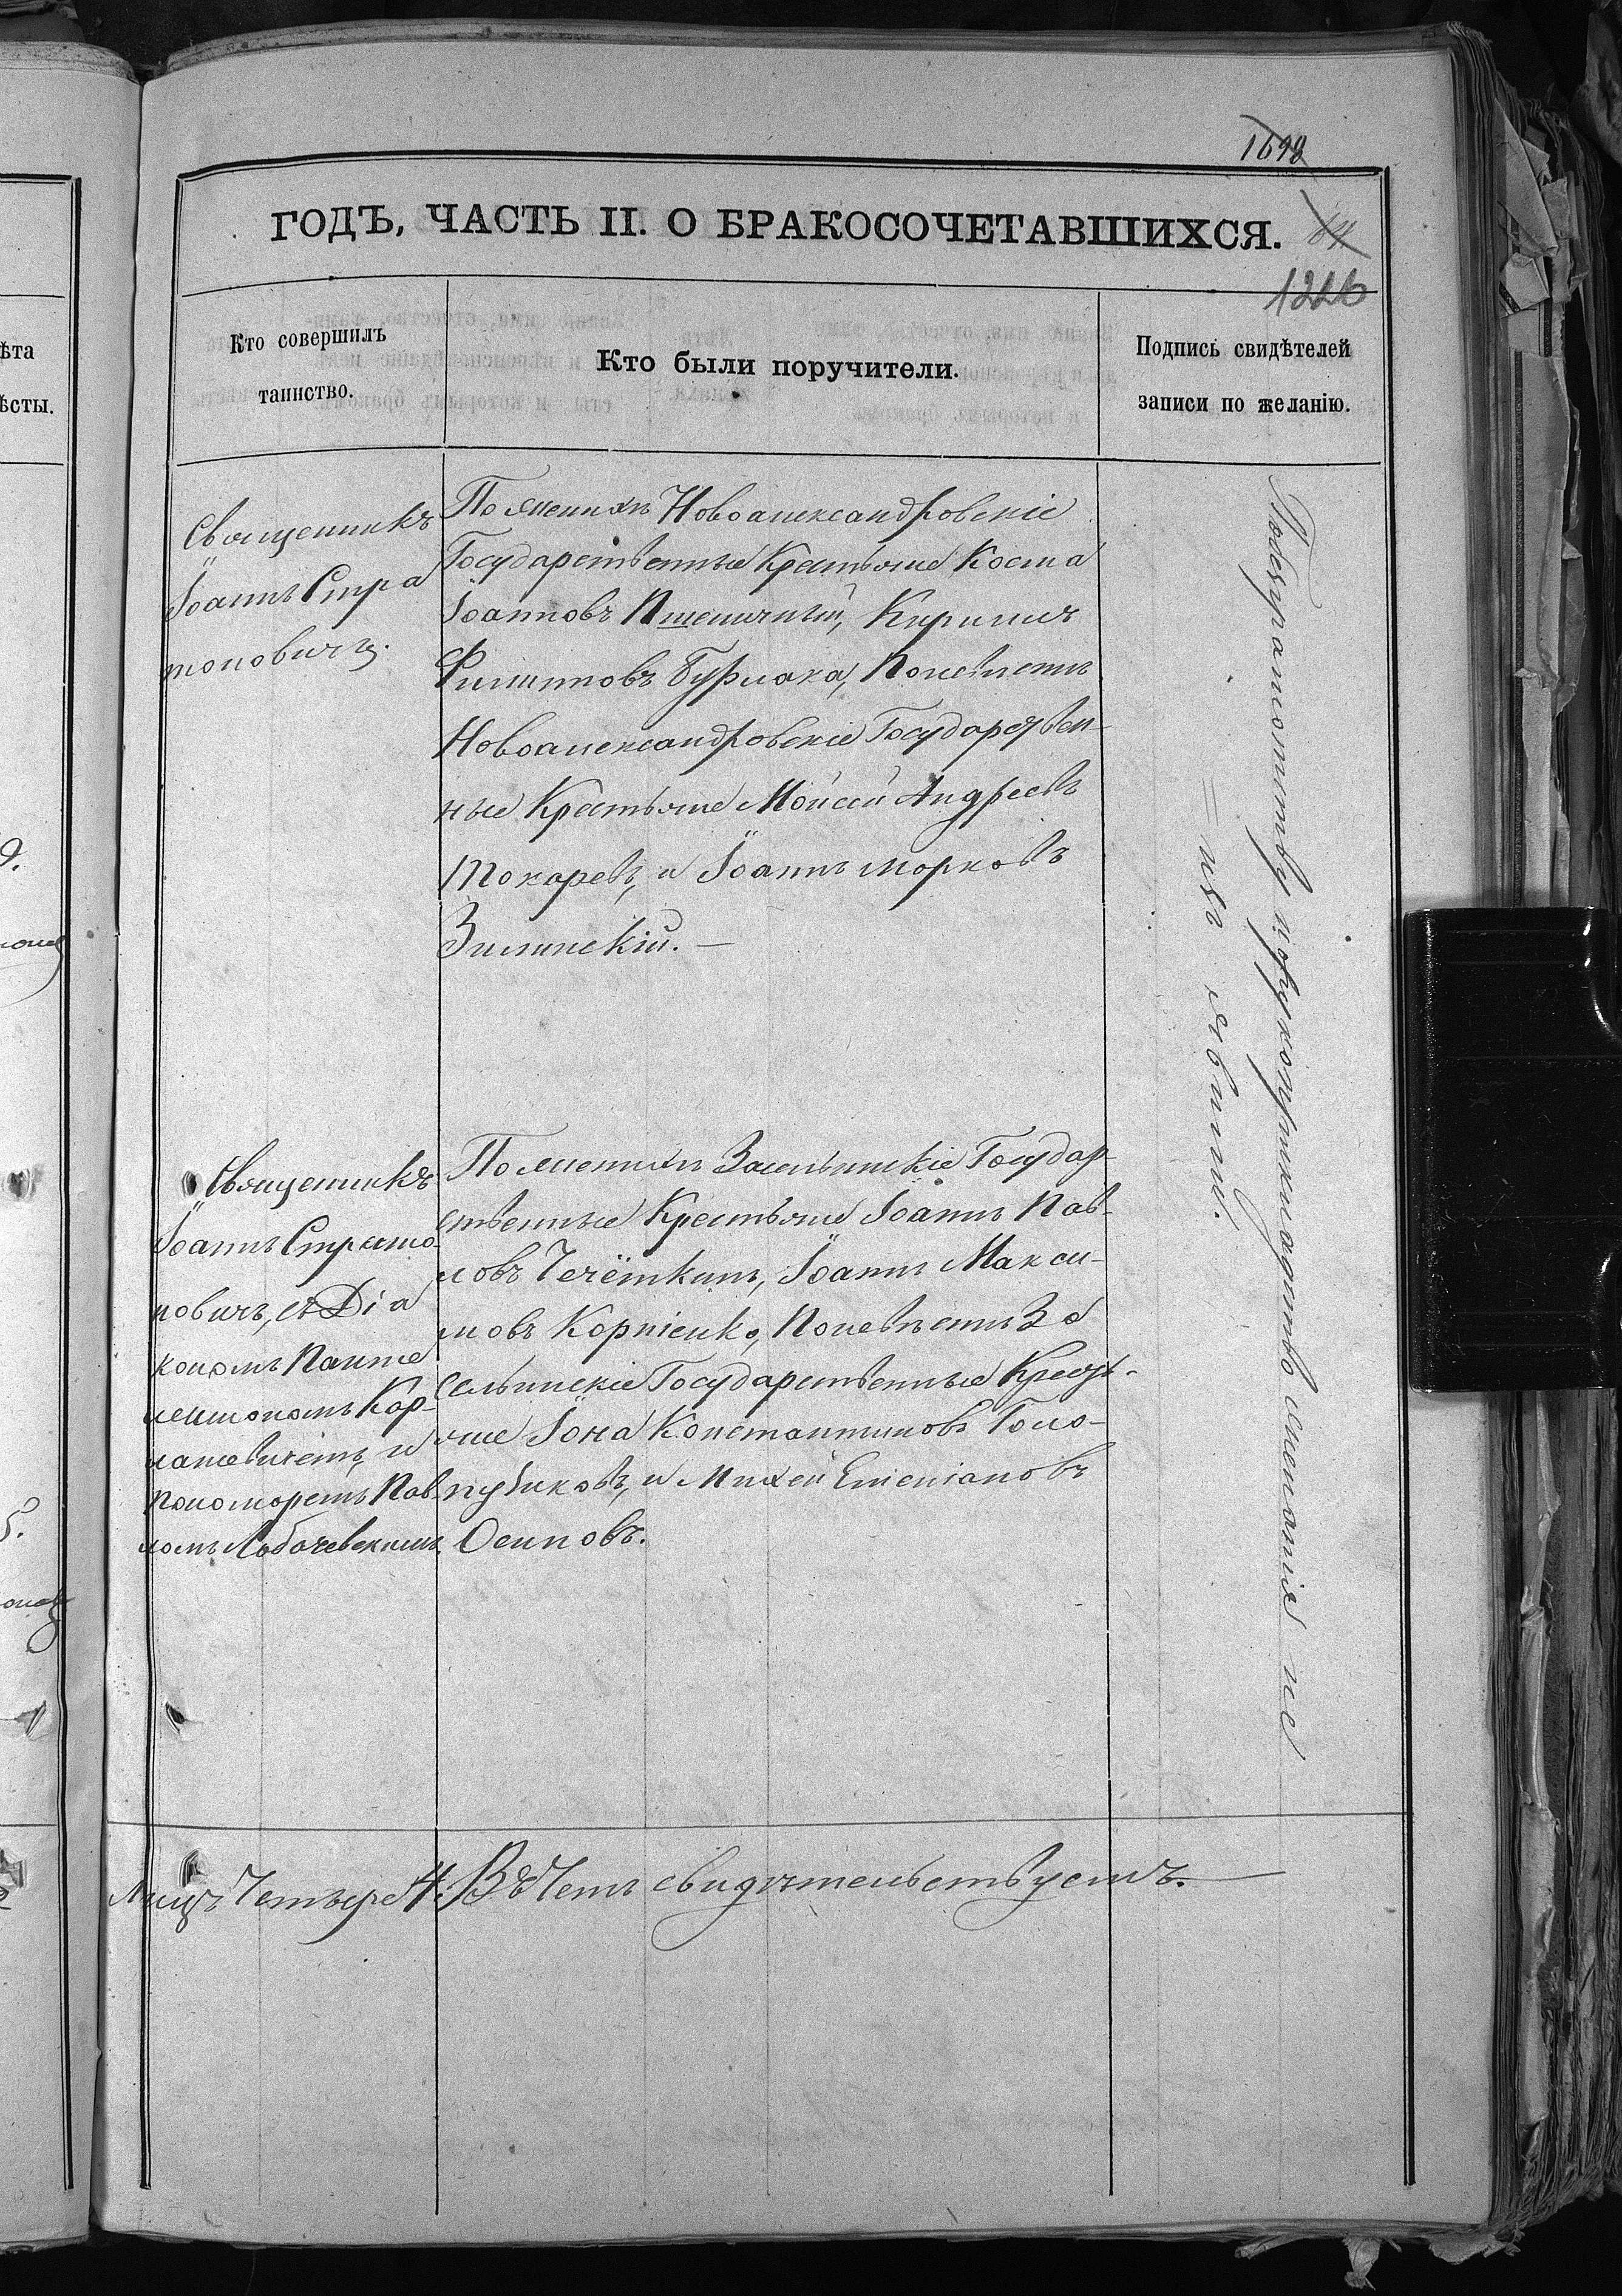 1698
ГОДЪ, ЧАСТЬ II. О БРАКОСОЧЕТАВШИХСЯ.
64
1226
Кто совершилъ
таинство.
Кто были поручители.
Подпись свидѣтелей
записи по желанію.
Священникъ
Іоаннъ Стра
тоновичъ.
По женихѣ Новоалександровскіе
Государственные Крестьяне Косма
Іоанновъ Пшеничный, Кириллъ
Филипповъ Бурлака, По невѣстѣ
Новоалександровскіе Государствен-
ные Крестьяне Мойсей Андреевъ
Токаревъ, и Іоаннъ Марковъ
Зилинскій. —
Священникъ
Іоаннъ Страто-
новичъ, съ Діа
кономъ Панте
леимономъ Кор-
лашевичемъ, и
пономоремъ Пав-
ломъ Лобачевскимъ.
По женихѣ Засельинскіе Государ-
ственные Крестьяне Іоаннъ Пав-
ловъ Чечёткинъ, Іоаннъ Макси-
мовъ Корніенко, По невѣстѣ За
сельинскіе Государственные Кресть-
яне Іона Константиновъ Голо-
пузиковъ, и Михей Емеліановъ
Осиповъ.
По безграмотству поручителей
не
Лицъ Четыре 4. В. Четъ свидѣтельствуетъ. —
ѣта
ѣсты.